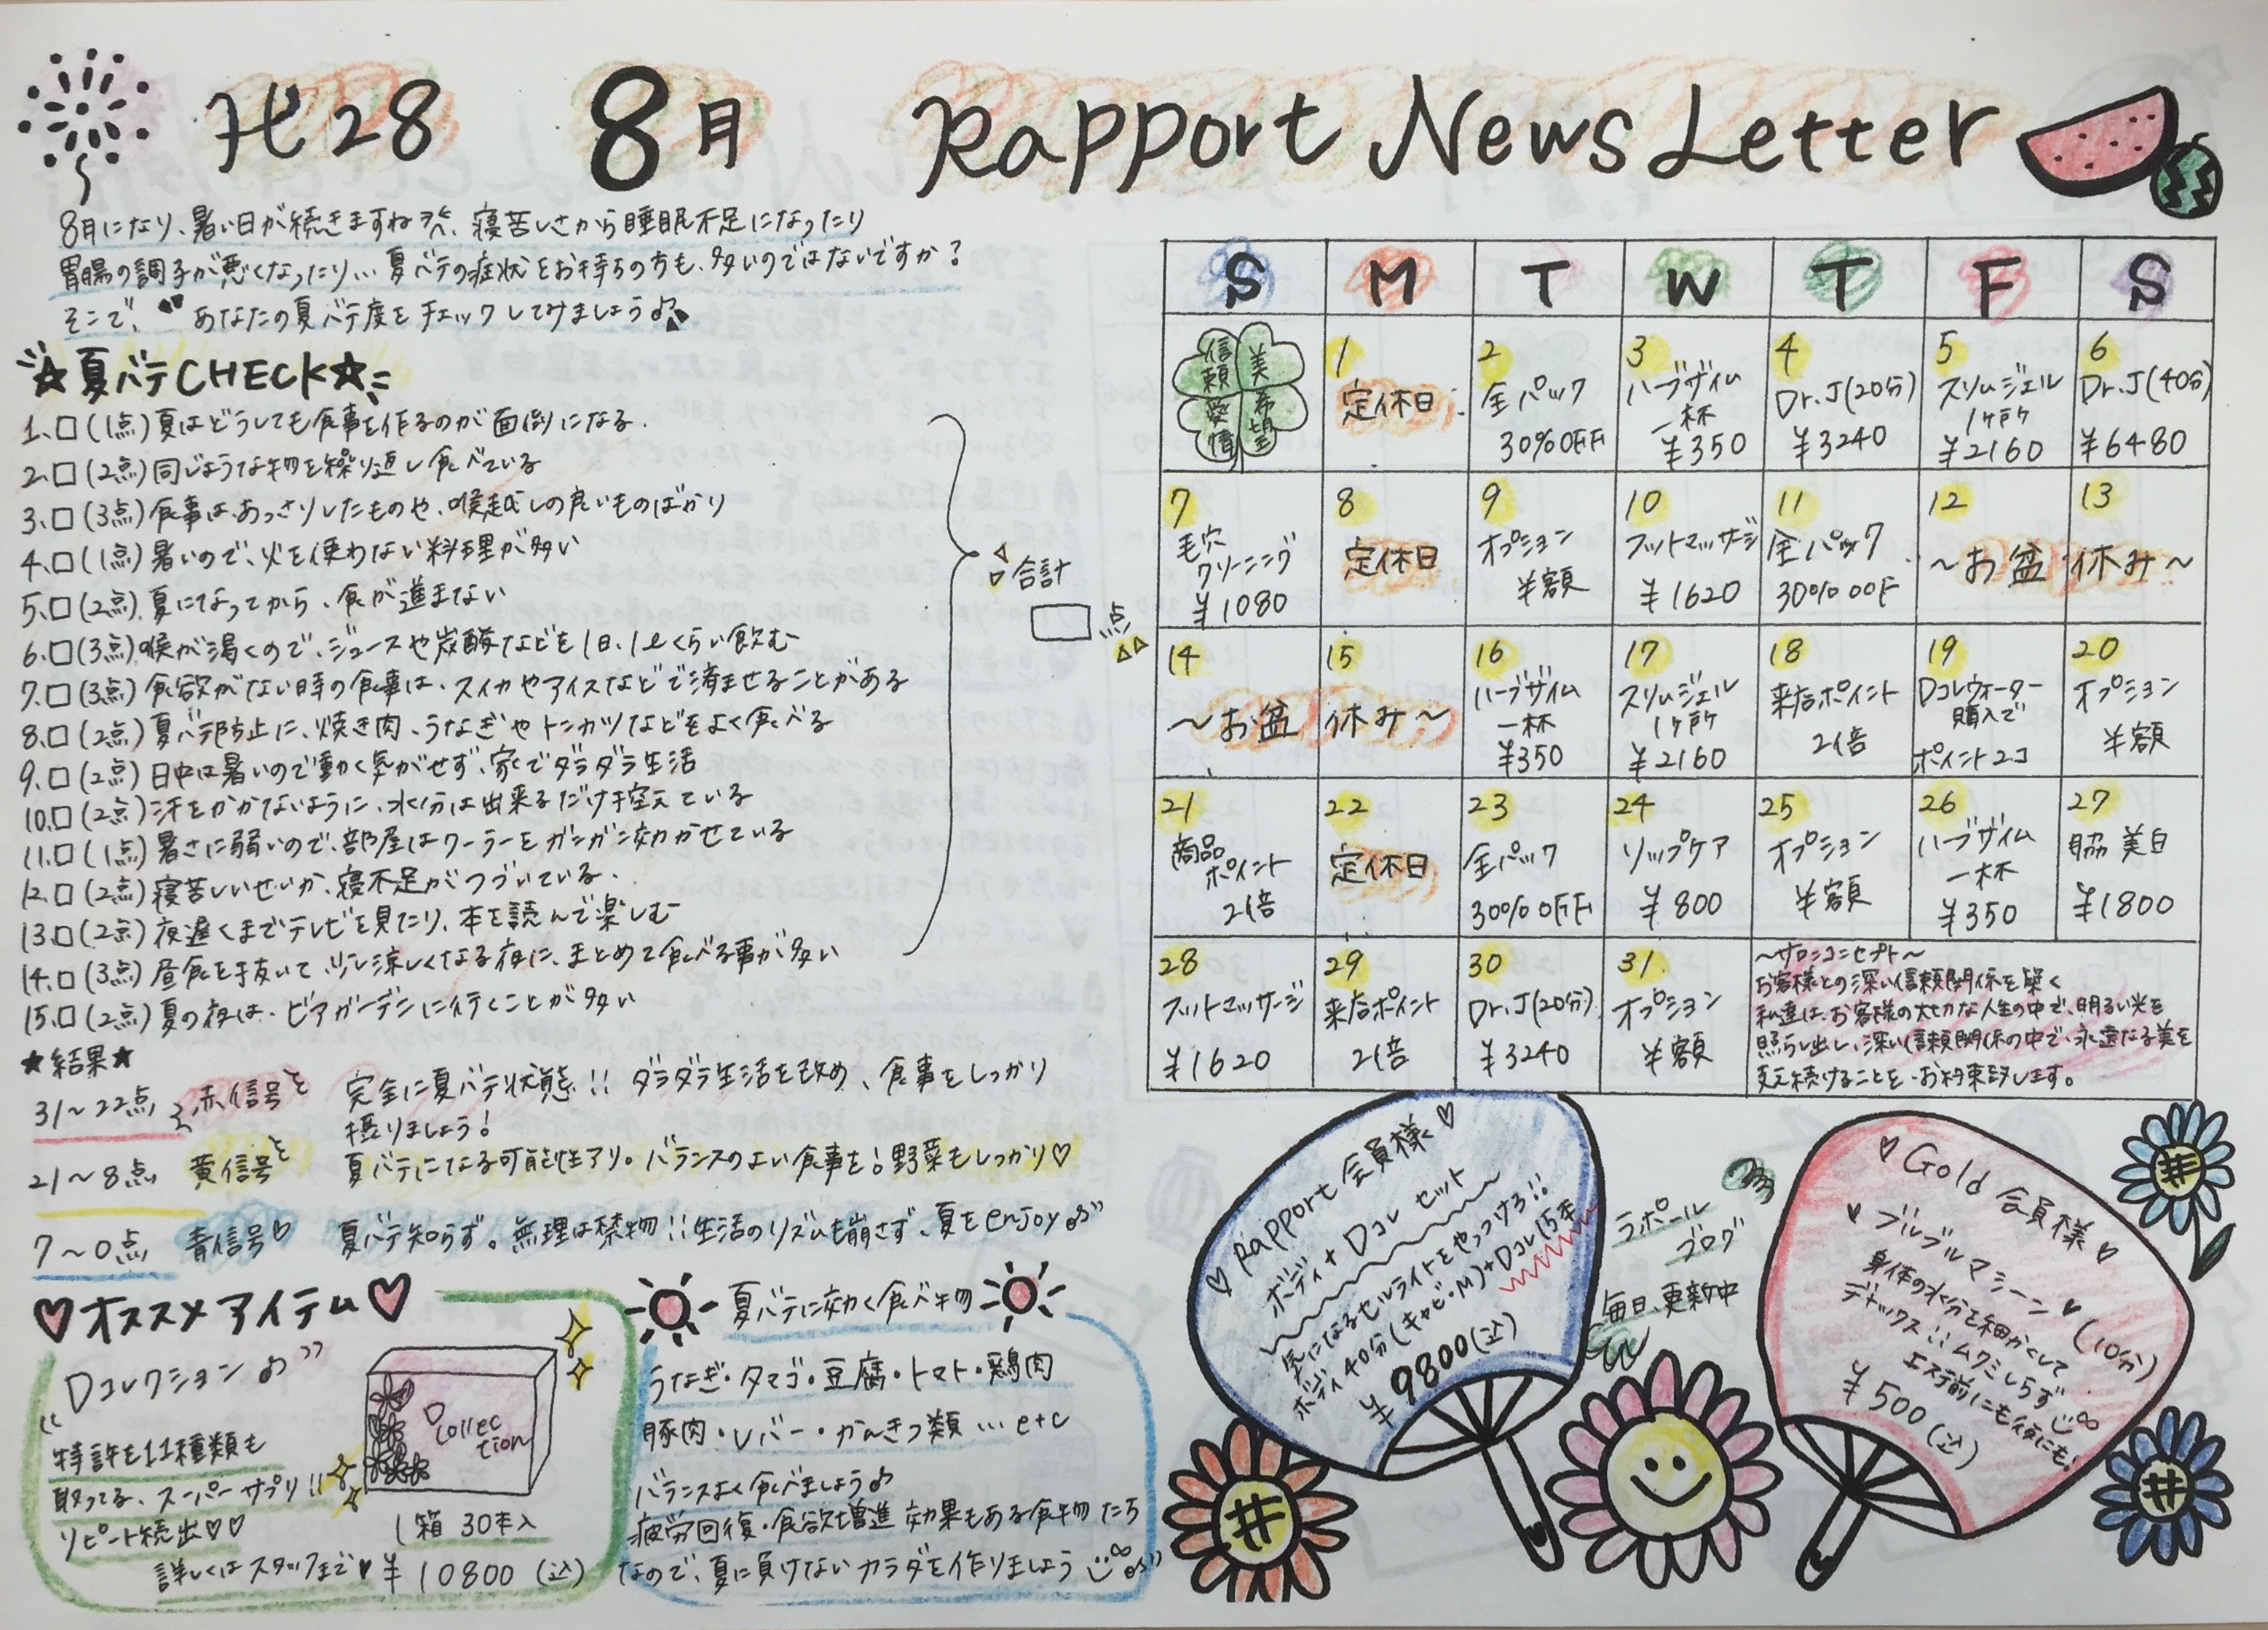 H28 8月 Rapport News Letter
8月になり、暑い日が続きますね、寝苦しさから睡眠不足になったり
胃腸の調子が悪くなったり… 夏バテの症状をお持ちの方も、多いのではないですか？
そこで、あなたの夏バテ度をチェックしてみましょう♪
☆夏バテCHECK☆
1.□(1点)夏はどうしても食事を作るのが面倒になる.
2.□(2点)同じような物を繰り返し食べている
3.□(3点)食事はあっさりしたものや、喉越しの良いものばかり
4.□(1点)暑いので、火を使わない料理が多い
5.□(2点)夏になってから、食が進まない
6.□(3点)喉が渇くので、ジュースや炭酸などを1日、1ℓくらい飲む
7.□(3点)食欲がない時の食事は、スイカやアイスなどで済ませることがある
8.□(2点)夏バテ防止に、焼き肉、うなぎやトンカツなどをよく食べる
9.□(2点)日中は暑いので動く気がせず、家でダラダラ生活
10.□(2点)汗をかかないように、水分は出来るだけ控えている
11.□(1点)暑さに弱いので、部屋はクーラーをガンガン効かせている
12.□(2点)寝苦しいせいか、寝不足がつづいている.
13.□(2点)夜遅くまでテレビを見たり、本を読んで楽しむ
14.□(3点)昼食を手抜いて、少し涼しくなる夜に、まとめて食べる事が多い
15.□(2点)夏の夜は、ビアガーデンに行くことが多い
合計
□点
★結果★
31～22点 赤信号 完全に夏バテ状態!! ダラダラ生活を改め、食事をしっかり
摂りましょう!
21～8点 黄信号 夏バテになる可能性アリ。バランスのよい食事を!野菜もしっかり♡
7～0点 青信号♡ 夏バテ知らず。無理は禁物!!生活のリズムも崩さず、夏をenjoy♪
♡オススメアイテム♡
Dコレクション♪
特許を11種類も
取ってる、スーパーサプリ!!
リピート続出♡♡
詳しくはスタッフまで♥
D
Collec
tion
1箱 30本入
¥10800(込)
夏バテに効く食べ物
うなぎ・タマゴ・豆腐・トマト・鶏肉
豚肉・レバー・かんきつ類…etc
バランスよく食べましょう♪
疲労回復・食欲増進効果もある食物たち
なので、夏に負けないカラダを作りましょう
S M T W T F S
信頼 美 愛情 希望
1 定休日
2 全パック 30%OFF
3 ハーブザイム 一杯 ¥350
4 Dr.J(20分) ¥3240
5 スリムジェル 1ヶ所 ¥2160
6 Dr.J(40分) ¥6480
7 毛穴クリーニング ¥1080
8 定休日
9 オプション 半額
10 フットマッサージ ¥1620
11 全パック 30%OOF
12 13 ～お盆休み～
14 15 ～お盆休み～
16 ハーブザイム 一杯 ¥350
17 スリムジェル 1ヶ所 ¥2160
18 来店ポイント 2倍
19 Dコレウォーター 購入で ポイント2コ
20 オプション 半額
21 商品ポイント 2倍
22 定休日
23 全パック 30%OFF
24 リップケア ¥800
25 オプション 半額
26 ハーブザイム 一杯 ¥350
27 脇 美白 ¥1800
28 フットマッサージ ¥1620
29 来店ポイント 2倍
30 Dr.J(20分) ¥3240
31 オプション 半額
～サロンコンセプト～
お客様との深い信頼関係を築く
私達は、お客様の大切な人生の中で、明るい光を
照らし出し、深い信頼関係の中で、永遠なる美を
支え続けることを、お約束致します。
♡Rapport会員様♡
ボディ+Dコレセット
気になるセルライトをやっつけろ!!
ボディ40分(キャビ・M)+Dコレ15本
¥9800(込)
ラポール
ブログ
毎日、更新中
♡Gold会員様♡
♥ブルブルマシーン♥(10分)
身体の水分を細かくして
デトックス!!ムクミしらず
エステ前にも後にも!
¥500(込)